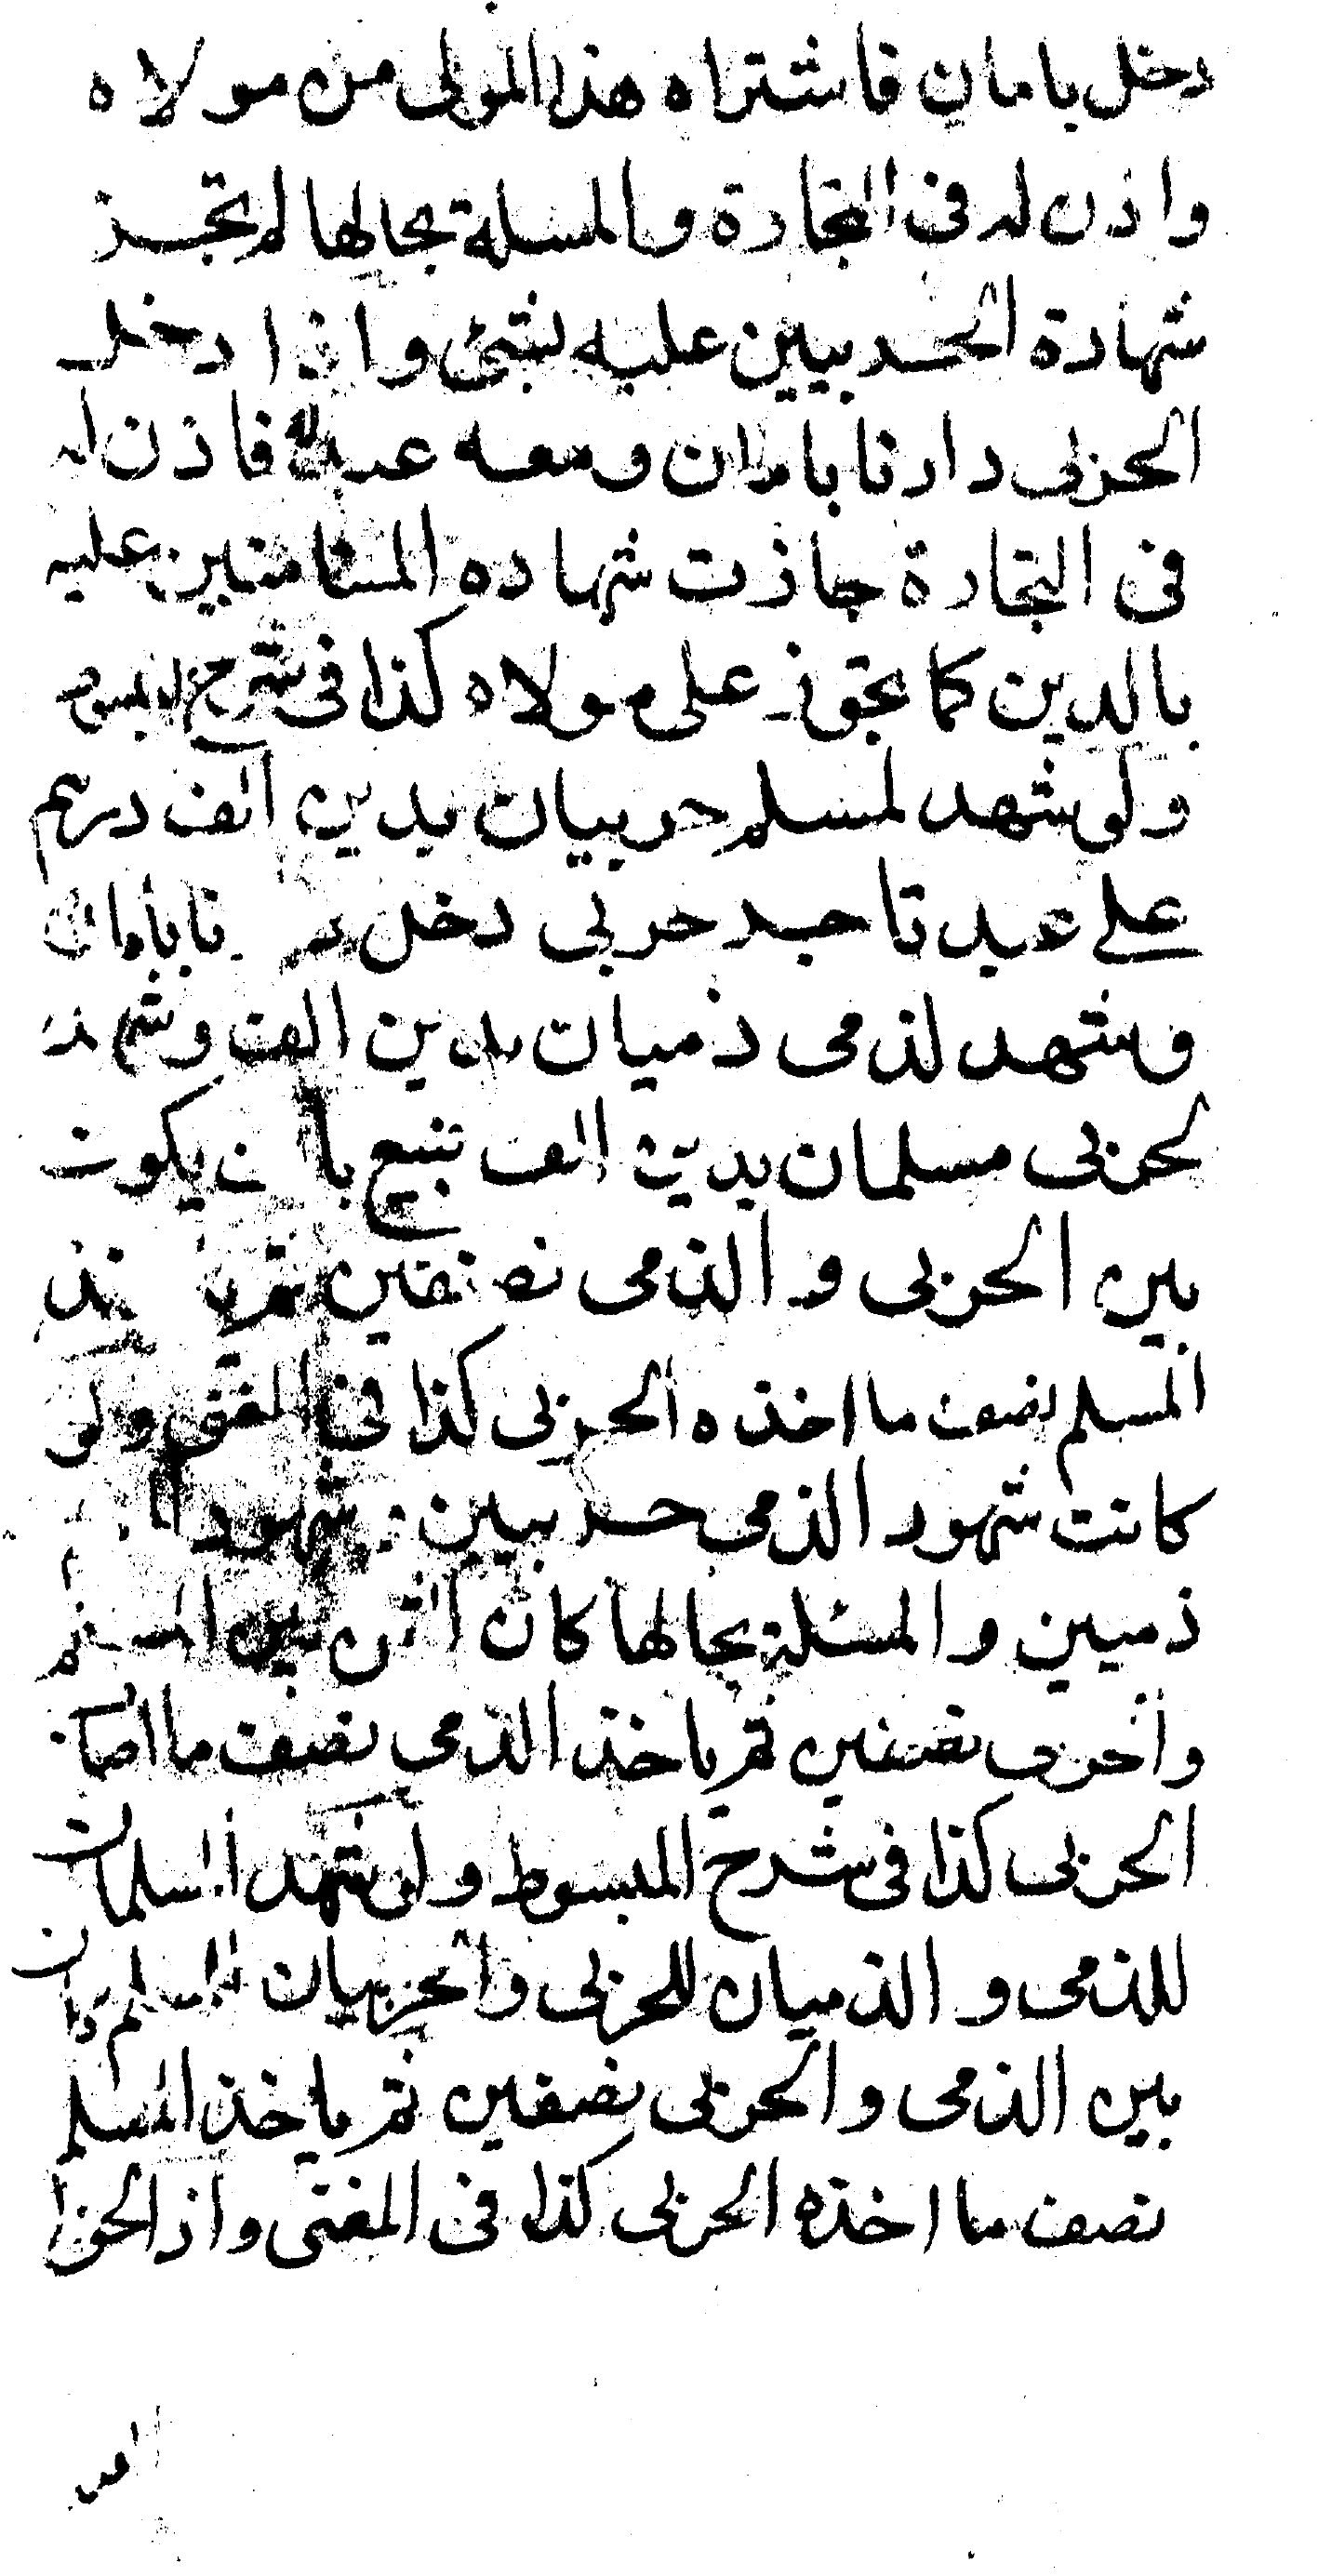 دخل بامان فاشتراه هذا المولى من مولاه
واذن له فى التجارة والمسلة بحالها لم تجز
شهادة الحربيين عليه بشئ واذا دخل
الحربى دارنا بامان ومعه عبد فاذن له
فى التجارة جازت شهاده المستامنين عليه
بالدين كما تجوز على مولاه كذا فى شرح المبسوط
ولو شهد لمسلم حربيان بدين الف درهم
على عبد تاجر حربى دخل نا بامان
وشهد لذمى ذميان بدين الف وشهد
لحربى مسلمان بدين الف تبيع با ن يكون
بين الحربى والذمى نصفين ثم ياخذ
المسلم نصف ما اخذه الحربى كذا فى المغنى ولو
كانت شهود الذمى حربيين وشهود
ذميين والمسئلة بحالها كان الثمن بين المسلم
والحربى نصفين ثم ياخذ الذمى نصف ما اصاب
الحربى كذا فى شرح المبسوط ولو شهد المسلمان
للذمى والذميان للحربى والحربيان للمسلم كان
بين الذمى والحربى نصفين ثم ياخذ المسلم
نصف ما اخذه الحربى كذا فى المغنى واذا